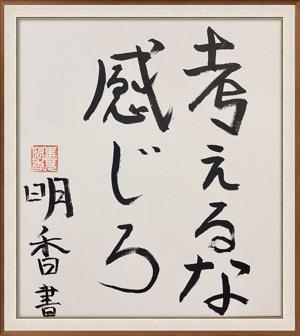 考えるな
感じろ
明香書